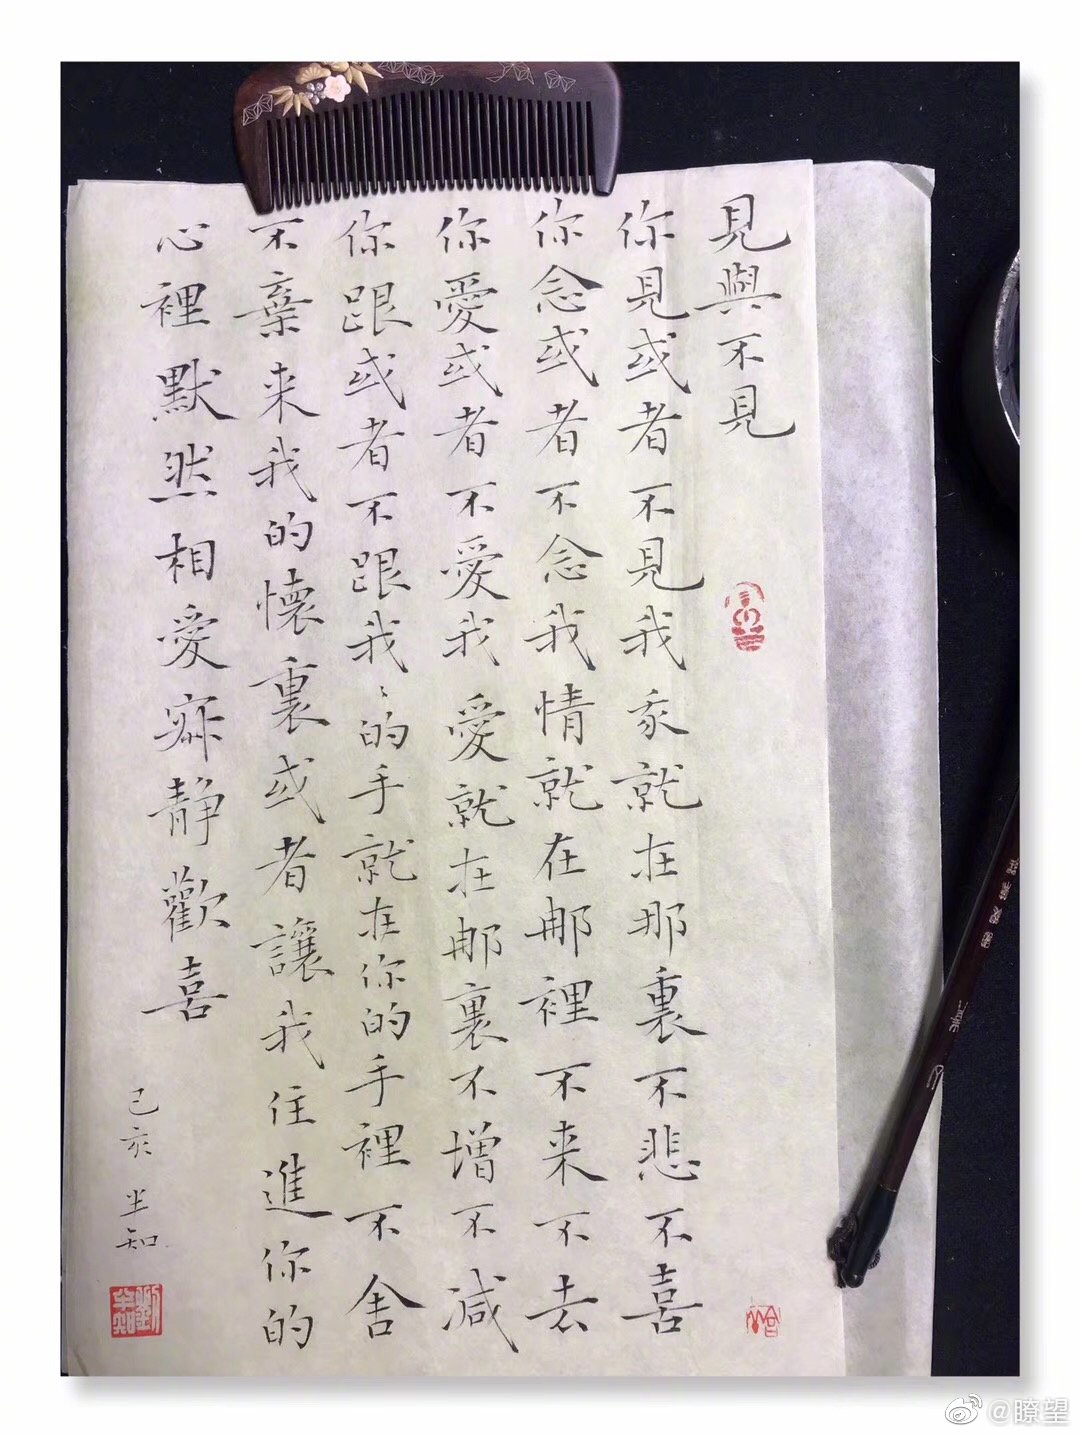 見與不見
你見或者不見我我就在那裏不悲不喜
你念或者不念我情就在那裡不来不去
你愛或者不愛我愛就在那裏不增不減
你跟或者不跟我〻的手就在你的手裡不舍
不棄来我的懷裏或者讓我住進你的
心裡默然相愛寂静歡喜
己亥 半知
@瞭望